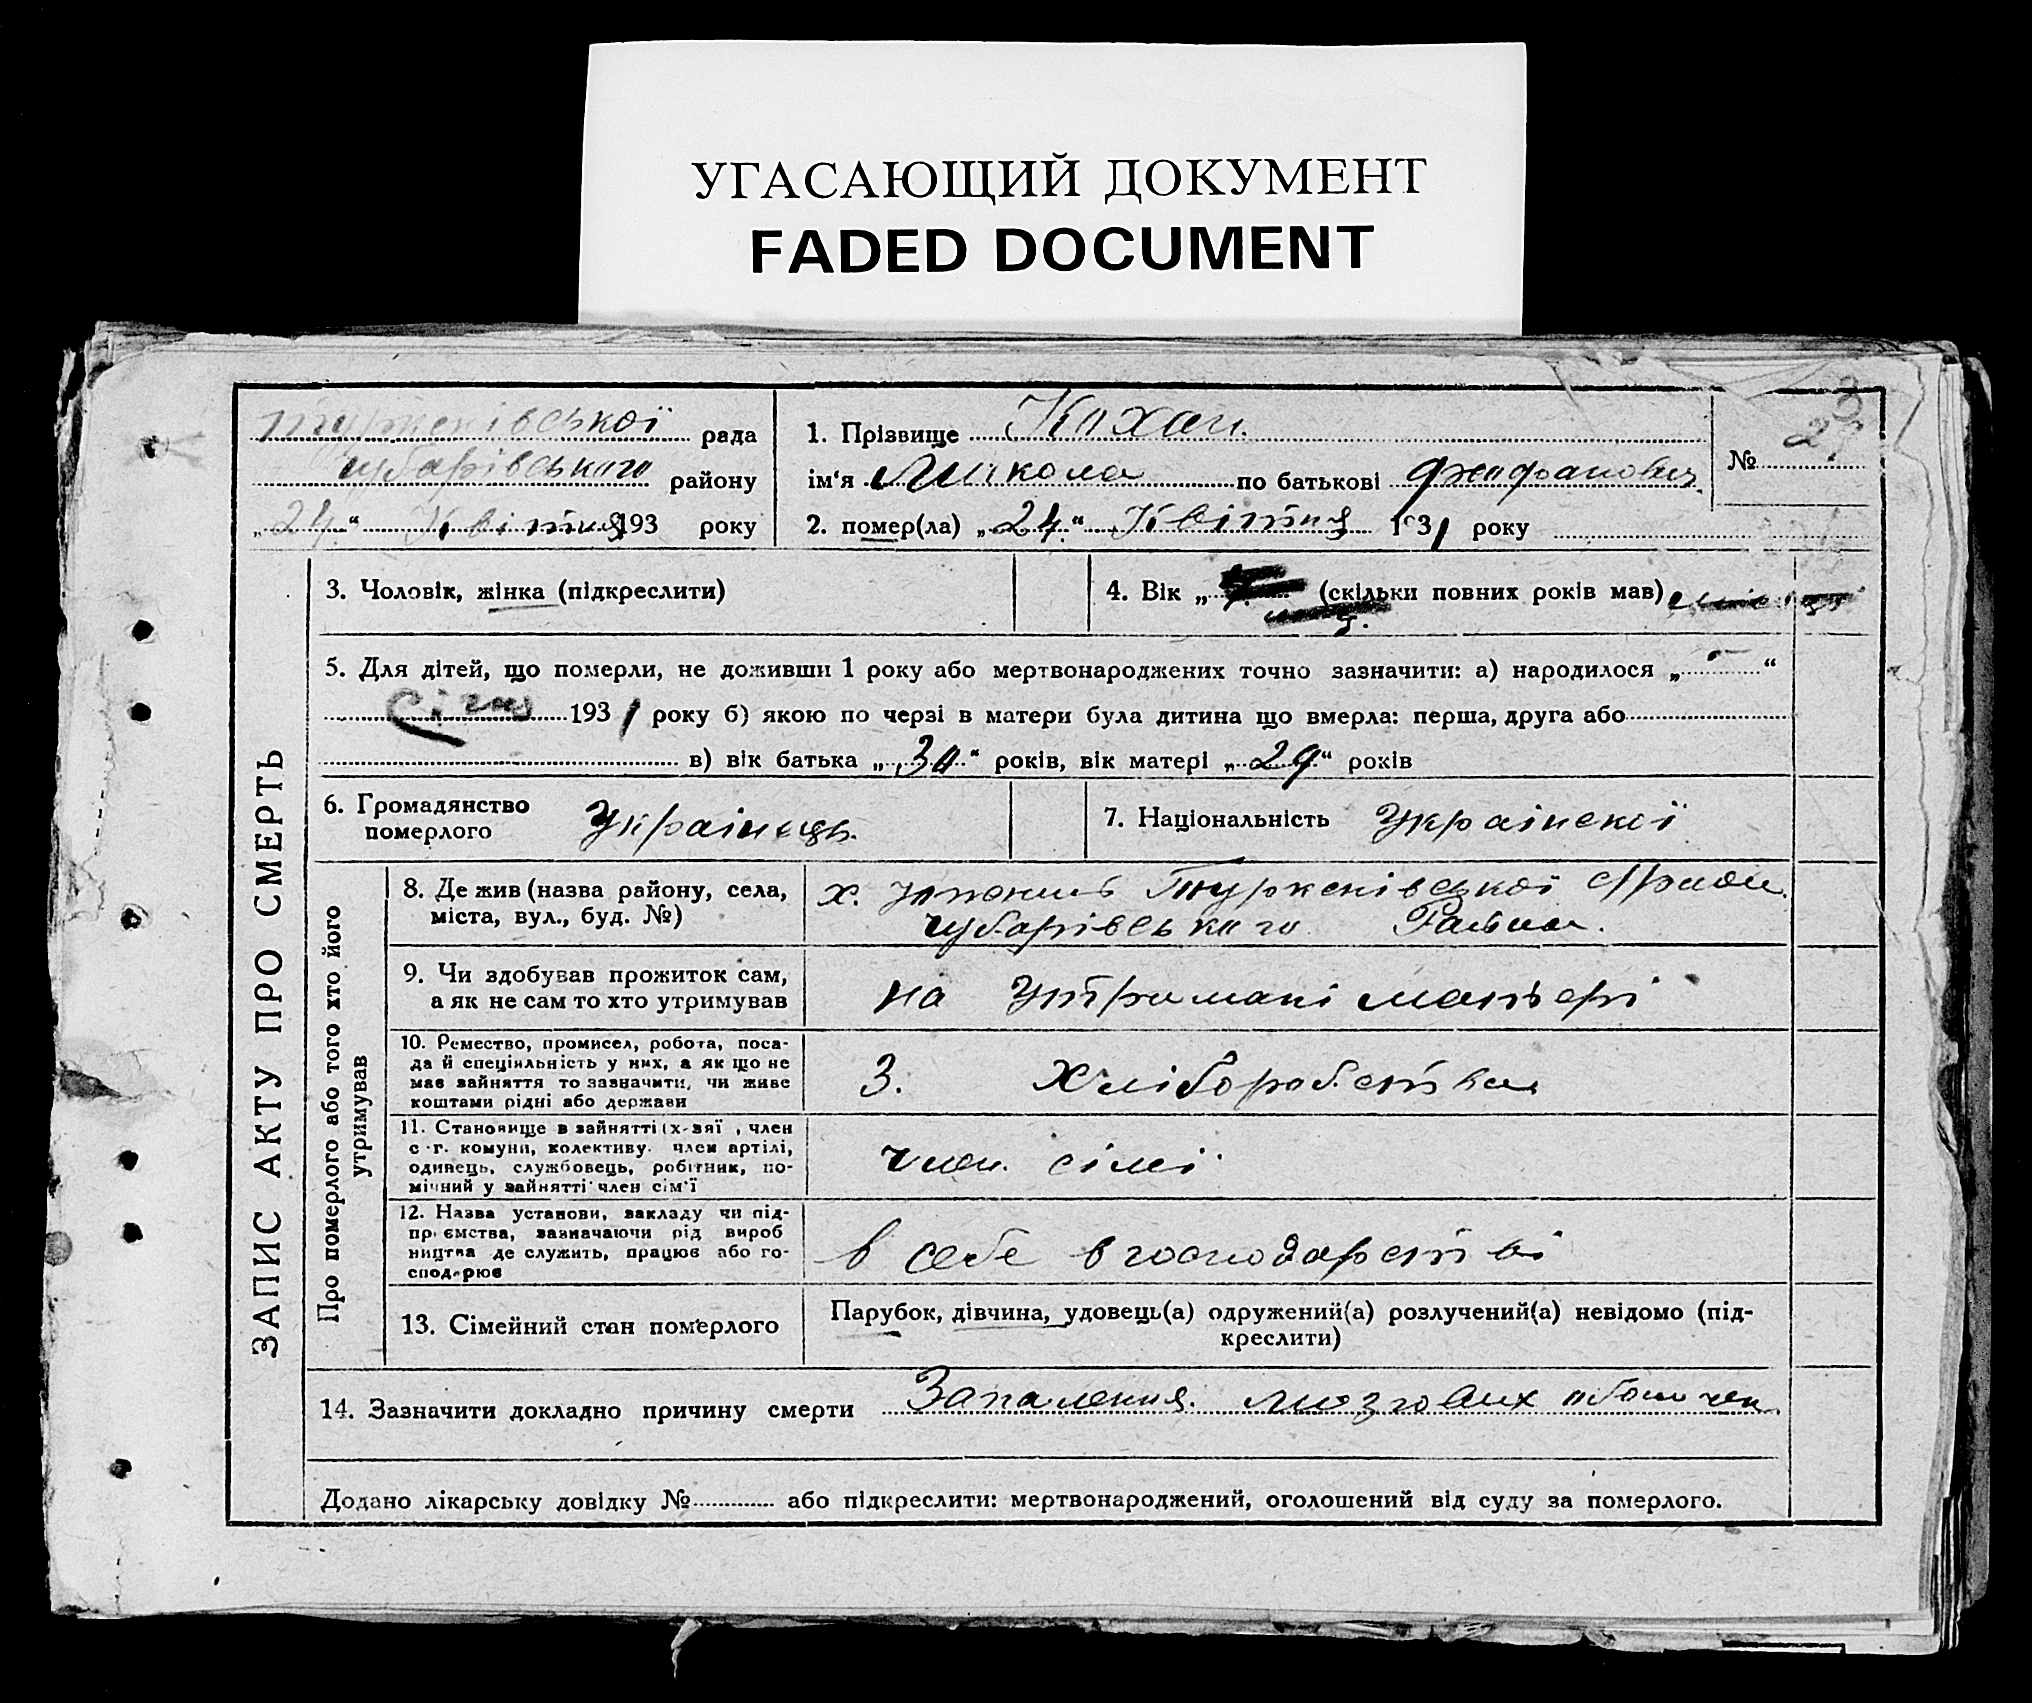 УГАСАЮЩИЙ ДОКУМЕНТ
FADED DOCUMENT
Туркенівської рада
Чубарівського району
„24“ Квітня 193 року
1. Прізвище Кохан.
ім‘я Микола по батькові
№ 29
2. помер(ла) „24“ Квітня 1931 року
ЗАПИС АКТУ ПРО СМЕРТЬ
3. Чоловік, жінка (підкреслити)
4. Вік „ (скільки повних років мав)
5. Для дітей, що померли, не доживши 1 року або мертвонароджених точно зазначити: а) народилося „ - “
Січня 1931 року б) якою по черзі в матери була дитина що вмерла: перша, друга або
в) вік батька „30“ років, вік матері „29“ років
6. Громадянство
померлого
Українець.
7. Національність Українскої
Про померлого або того хто його
утримував
8. Де жив (назва району, села,
міста, вул., буд. №)
х. Туркенівської
Чубарівського
9. Чи здобував прожиток сам,
а як не сам то хто утримував
на утримані матері
10. Ремество, промисел, робота, поса-
да й спеціяльність у них, а як що не
має зайняття то зазначити, чи живе
коштами рідні або держави
З. Хліборобства
11. Становище в зайнятті (х-вяї , член
с-г. комуни, колективу. член артілі,
одинець, службовець, робітник, по-
мічний у зайнятті член сім'ї
член сімі
12. Назва установи, закладу чи під-
приємства, зазначаючи рід вироб
ництва де служить, працює або го-
сподарює
в себе в господарстві
13. Сімейний стан померлого
Парубок, дівчина, удовець(а) одружений(а) розлучений(а) невідомо (під-
креслити)
14. Зазначити докладно причину смерти Запалення мозгових оболочек
Додано лікарську довідку № або підкреслити: мертвонароджений, оголошений від суду за померлого.